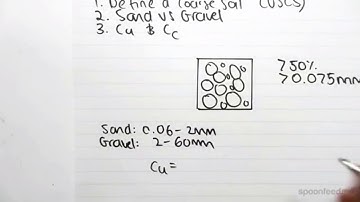 1. Define a Coarse Soil (USCS)
2. Sand vs Gravel
3. Cu & Cc
>50%
>0.075mm
Sand: 0.06-2mm
Gravel: 2-60mm
Cu=
spoonfeedme